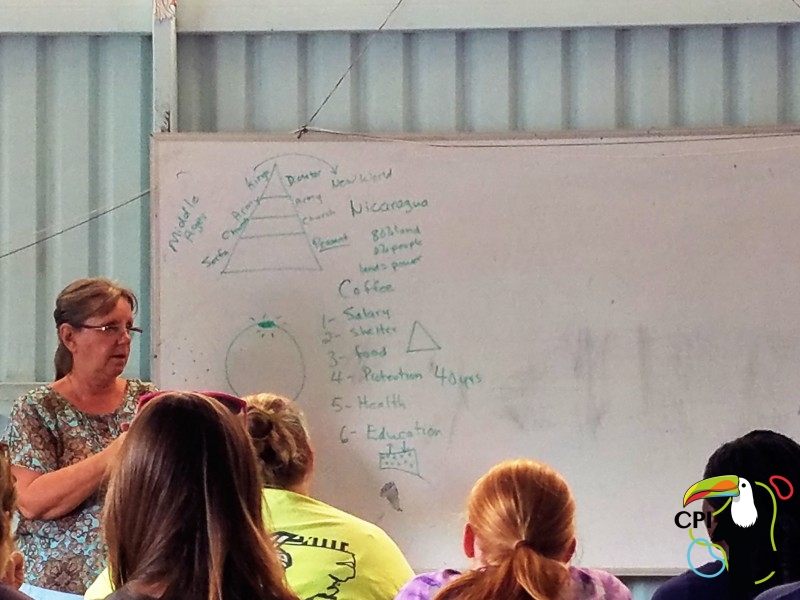 Middle
Ages
King
Dictator
New World
Army
Army
Church
Church
Nicaragua
Serfs
Peasant
80% land
people
land = power
Coffee
1- Salary
2- Shelter
3- food
4- Protection 40yrs
5- Health
6- Education
CPI